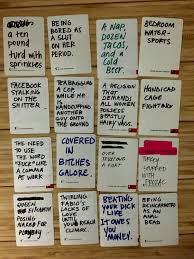 a ten
pound
turd with
sprinkles
BEING
BORED AS
A SLUT
ON HER
PERIOD.
A NAP,
DOZEN
TACOS,
and a
COLD
BEER.
BEDROOM
WATER-
SPORTS
FACEBOOK
STALKING
ON THE
SHITTER
TEABAGGING
A COP,
WHILE HE
IS
HANDCUFFING
ANOTHER
GUY ONTO
THE GROUND
A RELIGION
THAT
DEMANDS
ALL WOMEN
POSSESS
BEASTLY
HAIRY VAGS.
HANDICAP
CAGE
FIGHTING
THE NEED
TO USE
THE WORD
"FUCK" LIKE
A COMMA
AT WORK
COVERED
IN
BITCHES
GALORE.
OVER
A FART
QUEEN
ELIZABETH
POSING
NAKED FOR
TWIRLING
FABIO'S
LOCKS OF
LOVE
UNTIL
YOU REACH
CLIMAX.
BEATING
YOUR DICK
LIKE IT
OWES YOU
MONEY.
BEING
AS AN
ANAL
BEAD